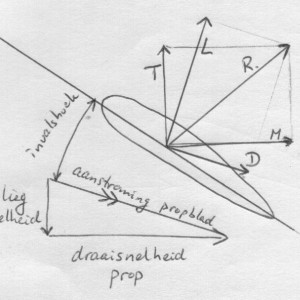 L
T
R.
M
D
invalshoek
aanstroming propblad
lieg
elheid
draaisnelheid
prop